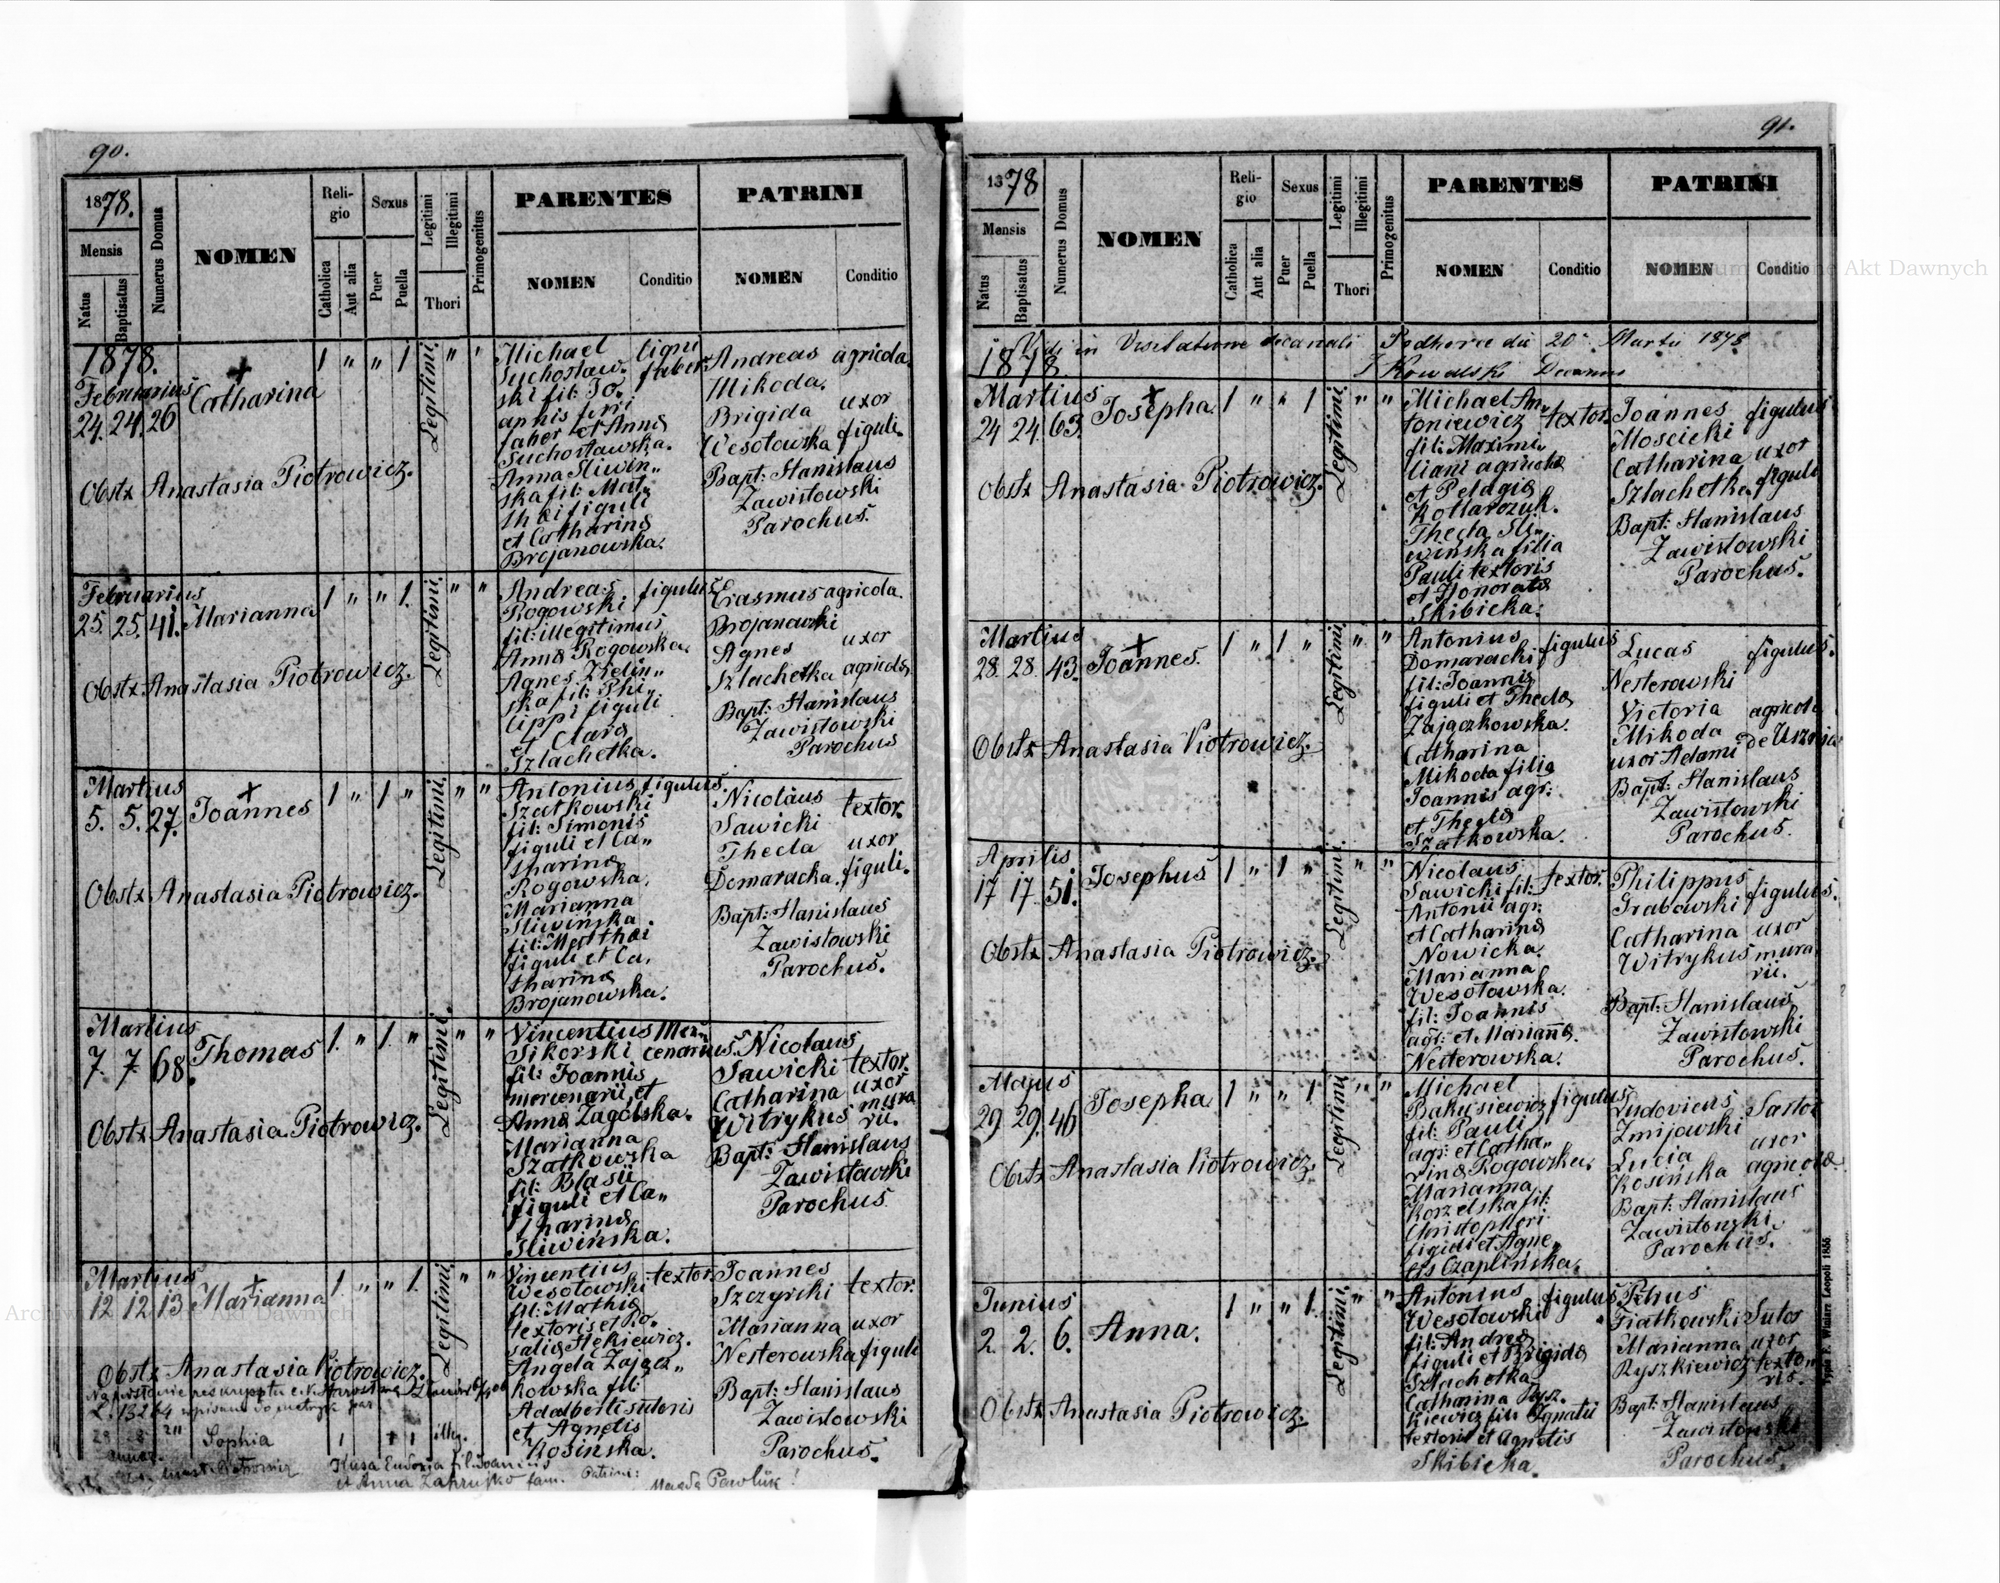 90.
1878.
Mensis
Natus
Baptisatus
Numerus Domus
NOMEN
Religio
Catholica
Aut alia
Sexus
Puer
Puella
Legitimi
Illegitimi
Thori
Primogenitus
PARENTES
NOMEN
Conditio
PATRINI
NOMEN
Conditio
1878.
Februarius
24. 24. 26
Catharina
1 " " 1
Legitimi.
" "
Michael ligni
Suchosław- faber
ski fil: Jo.
aphis ferri
faber et Annæ
Suchosławska.
Anna Sliwin"
ska fil: Mat-
thæi figuli
et Catharinæ
Brojanowska.
Andreas agricola
Mikoda,
Brigida uxor
Wesołowska figuli.
Bapt: Stanislaus
Zawistowski
Parochus.
Obstx Anastasia Piotrowicz.
Februarius
25. 25. 41. Marianna
1 " " 1.
Legitimi.
" "
Andreas figulus
Rogowski
fil: illegitimus
Annæ Rogowska.
Agnes Zielin"
ska fil: Phi"
lippi figuli
et Claræ
Szlachetka.
Erasmus agricola.
Brojanowski
Agnes uxor
Szlachetka agricolæ
Bapt: Stanislaus
Zawistowski
Parochus
Obstx Anastasia Piotrowicz.
Martius
5. 5. 27. Joannes
1 " 1 "
Legitimi.
" "
Antonius figulus.
Szatkowski
fil: Simonis
figuli et Ca"
tharinæ
Rogowska.
Marianna
Sliwińska.
fil: Matthæi
figuli et Ca,
tharinæ
Brojanowska.
Nicolaus textor.
Sawicki
Thecla uxor
Domaracka. figuli.
Bapt: Stanislaus
Zawistowski
Parochus.
Obstx Anastasia Piotrowicz.
Martius
7. 7. 68. Thomas
1. " 1. "
Legitimi.
" "
Vincentius Mer-
Sikorski cenarius.
fil: Joannis
mercenarii et
Annæ Zagolska.
Marianna
Szatkowska
fil: Blasii
figuli et Ca"
tharinæ
Sliwińska.
Nicolaus
Sawicki textor.
Catharina uxor
Witrykus mura
rii.
Bapt: Stanislaus
Zawistowski
Parochus.
Obstx Anastasia Piotrowicz.
Martius
12 12 13 Marianna
1. " " 1.
Legitimi.
" "
Vincentius
Wesołowski textor.
fil: Mathiæ
textoris et Ro.
saliæ Hekiewicz.
Angela Zającz"
kowska fil:
Adalberti sutoris
et Agnetis
Kosińska.
Joannes
Szczyrski textor.
Marianna uxor
Nesterowska figuli
Bapt: Stanislaus
Zawistowski
Parochus.
Obstx Anastasia Piotrowicz.
L. 13264 wpisano do metryk
28 28 Sophia 1 1 illeg.
Eudoxia fil: Joannis
et Anna fam. Patrini: Magda Pawluk!
91.
1878
Mensis
Natus
Baptisatus
Numerus Domus
NOMEN
Religio
Catholica
Aut alia
Sexus
Puer
Puella
Legitimi
Illegitimi
Thori
Primogenitus
PARENTES
NOMEN
Conditio
PATRINI
NOMEN
Conditio
Vidi in Visitatione decanali Podhorce die 20. Martii 1878
1878. J Kowalski Decanus
Martius
24 24. 63. Josepha.
1 " " 1
Legitimi.
" "
Michael An,
toniewicz textor.
fil: Maximi"
liani agricolæ
et Pelagiæ
Kottarczuk.
Thecla Sli"
wińska filia
Pauli textoris
et Honoratæ
Skibicka.
Joannes figulus
Moscicki
Catharina uxor
Szlachetka figuli
Bapt: Stanislaus
Zawistowski
Parochus.
Obstx Anastasia Piotrowicz.
Martius
28. 28. 43. Joannes.
1 " 1 "
Legitimi.
" "
Antonius figulus
Domaracki
fil: Joannis
figuli et Theclæ
Zajączkowska.
Catharina
Mikoda filia
Joannis agr:
et Theclæ
Szatkowska.
Lucas figulus.
Nesterowski
Victoria agricolæ
Mikoda de Usznia
uxor Adami
Bapt: Stanislaus
Zawistowski
Parochus.
Obstx Anastasia Piotrowicz.
Aprilis
17 17. 51. Josephus
1 " 1 "
Legitimi.
" "
Nicolaus textor.
Sawicki fil:
Antonii agr:
et Catharinæ
Nowicka.
Marianna
Wesołowska.
fil: Joannis
agr: et Mariannæ
Nesterowska.
Philippus
Grabowski figulus.
Catharina uxor
Witrykus mura
rii.
Bapt: Stanislaus
Zawistowski
Parochus.
Obstx Anastasia Piotrowicz.
Majus
29 29. 46 Josepha
1 " " 1
Legitimi.
" "
Michael
Bakusiewicz figulus
fil: Pauli
agr: et Catha"
rinæ Rogowska.
Marianna
Korzelska fil:
Christophori
figuli et Agne"
tis Czaplińska.
Ludovicus Sartor
Zmijowski
Lucia uxor
Kosińska agricolæ
Bapt: Stanislaus
Zawistowski
Parochus.
Obstx Anastasia Piotrowicz.
Junius
2. 2. 6. Anna.
1 " " 1.
Legitimi.
" "
Antonius figulus
Wesołowski
fil: Andreæ
figuli et Brigidæ
Szlachetka
Catharina Rysz-
kiewicz filia Ignatii
textoris et Agnetis
Skibicka.
Petrus
Fiatkowski Sutor
Marianna uxor
Ryszkiewicz texto
ris.
Bapt: Stanislaus
Zawistowski
Parochus.
Obstx Anastasia Piotrowicz.
Typis E. Winiarz Leopoli 1855.
Akt Dawnych
Akt Dawnych